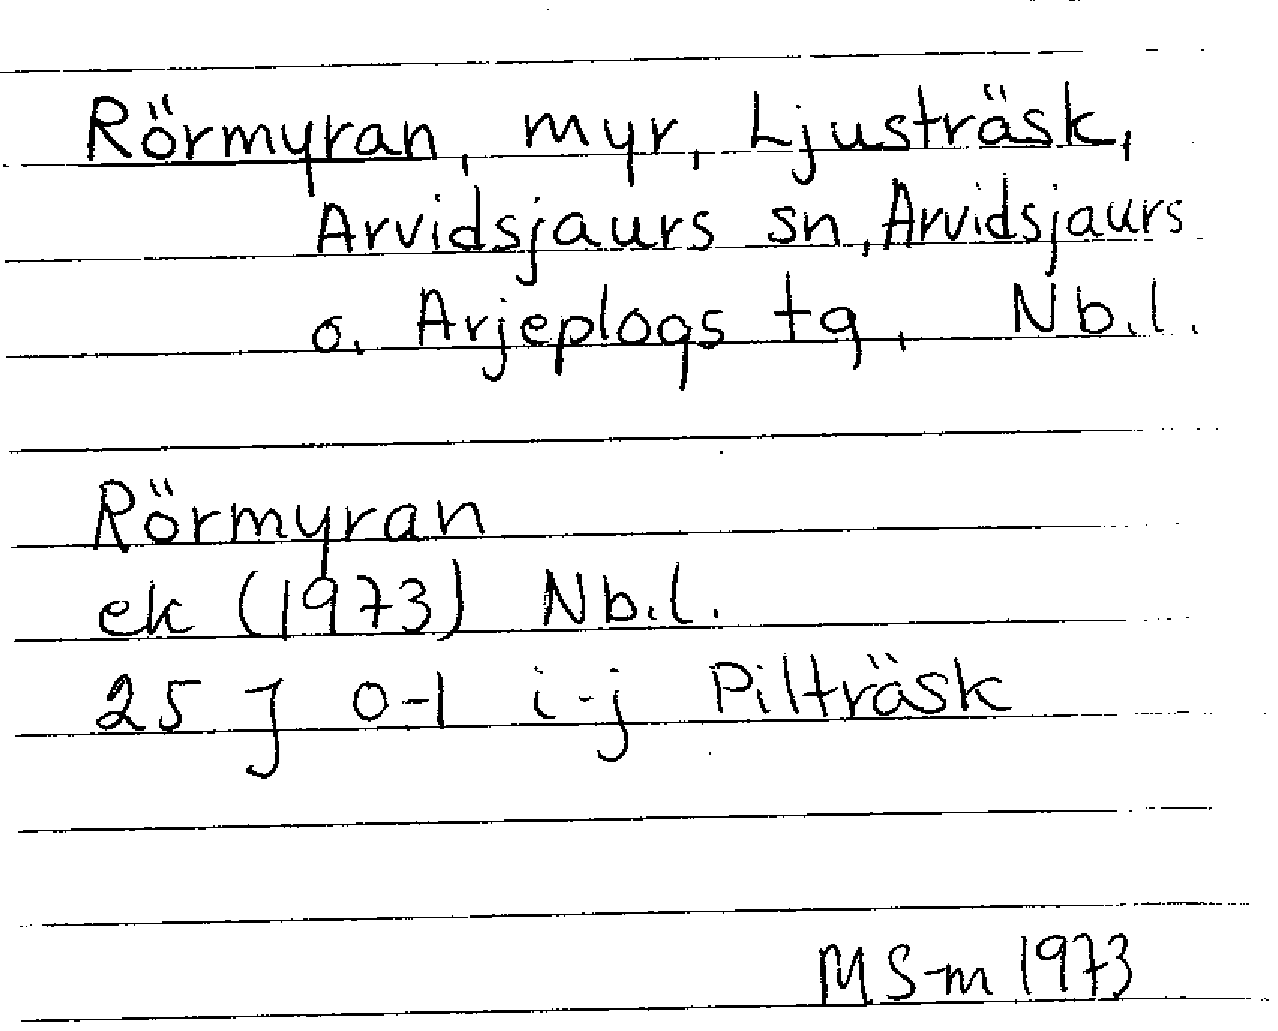 Rörmyran, myr, Ljusträsk,
Arvidsjaurs sn, Arvidsjaurs
o. Arjeplogs tg, Nb.l.
Rörmyran
ek (1973) Nb.l.
25 J 0-1 i-j Pilträsk
MS-m 1973